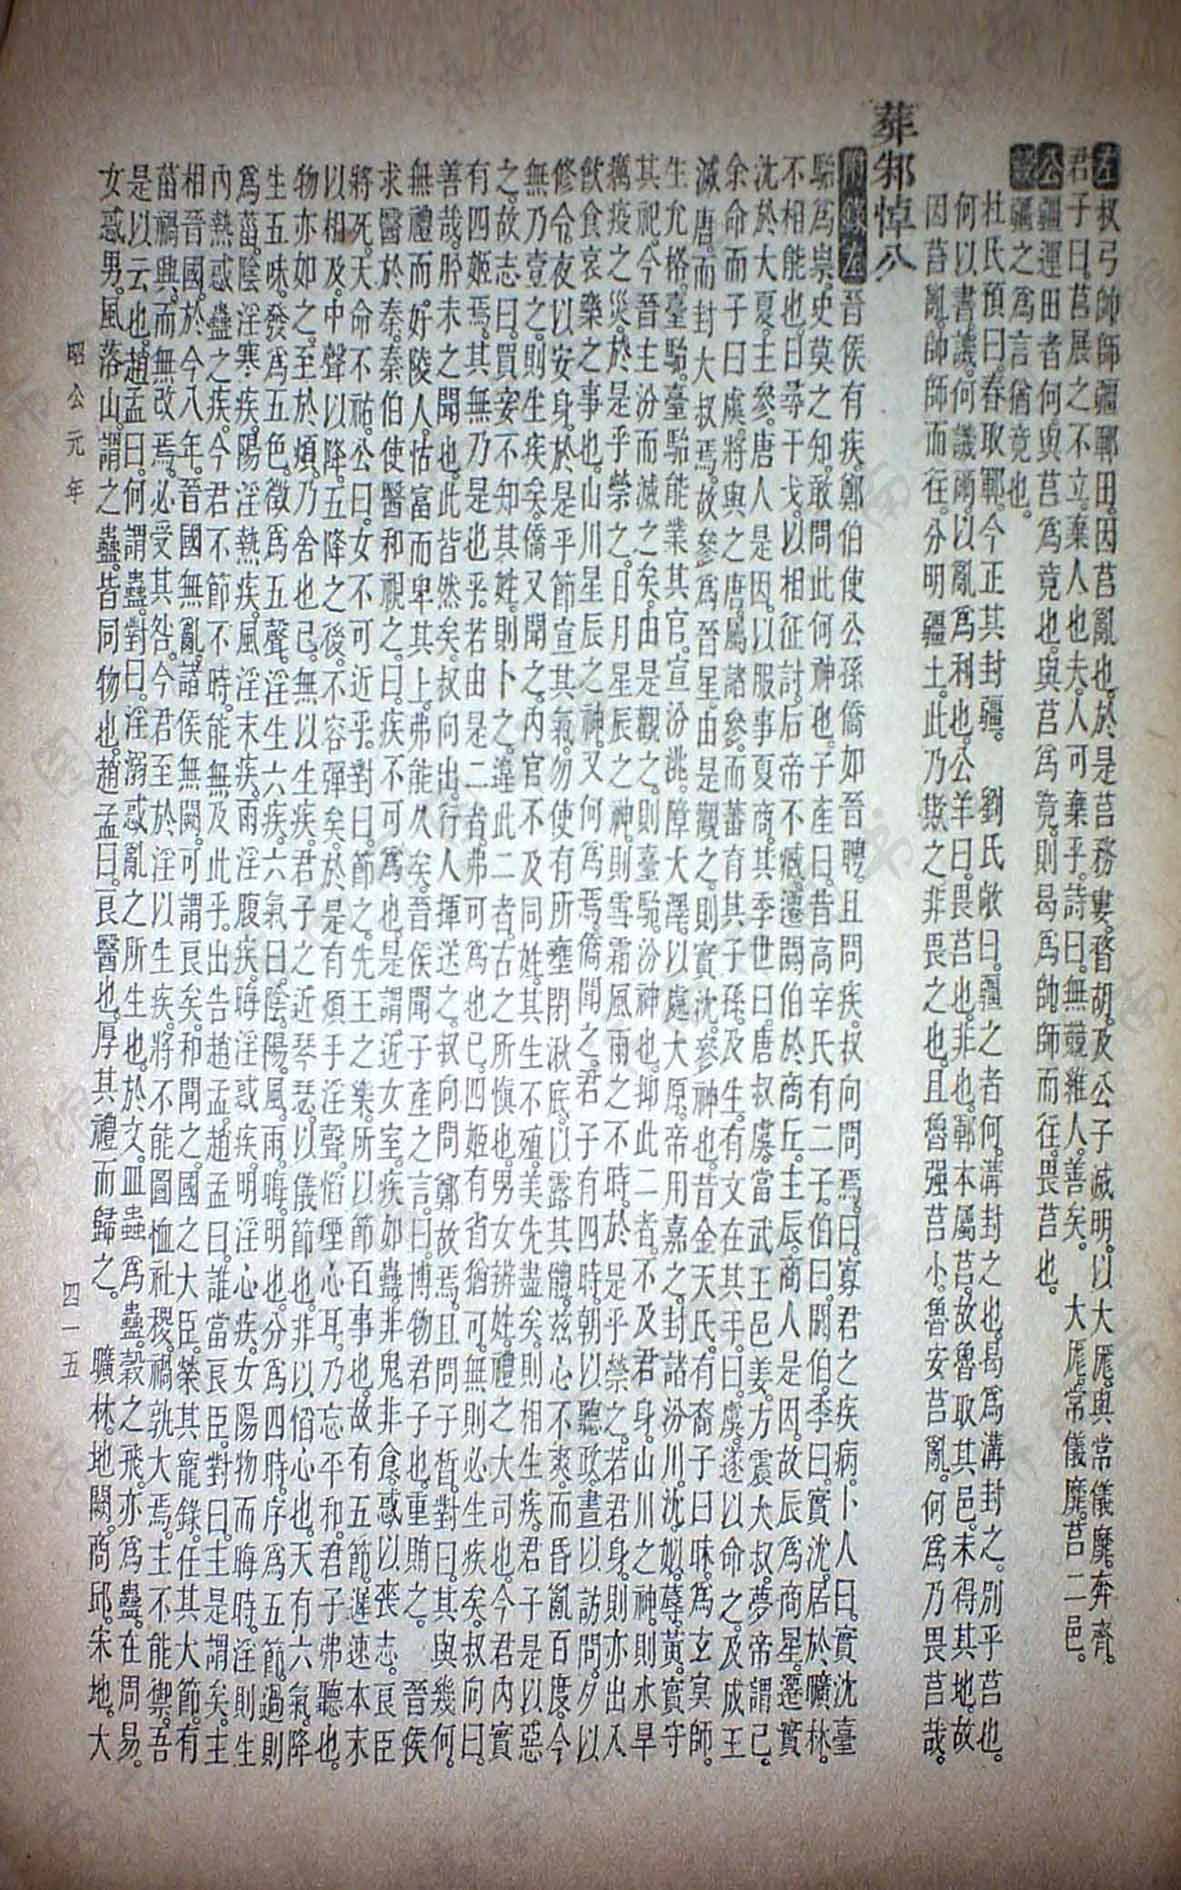 左叔弓帥師疆鄆田。因莒亂也。於是莒務婁。瞀胡。及公子滅明。以大厖。與常儀靡。奔齊。
君子曰。莒展之不立。棄人也夫。人可棄乎。詩曰。無競維人。善矣。 大厖。常儀靡。莒二邑。
公疆運田者何。與莒爲竟也。與莒爲竟。則曷爲帥師而往。畏莒也。
疆之爲言猶竟也。
杜氏預曰。春取鄆。今正其封疆。 劉氏敞曰。疆之者何。溝封之也。曷爲溝封之。別乎莒也。
何以書。譏。何譏爾。以亂爲利也。公羊曰。畏莒也。非也。鄆本屬莒。故魯取其邑。未得其地。故
因莒亂。帥師而往。分明疆土。此乃欺之。非畏之也。且魯强莒小。魯安莒亂。何爲乃畏莒哉。
葬邾悼公
附錄左晉侯有疾。鄭伯使公孫僑如晉聘。且問疾。叔向問焉。曰。寡君之疾病。卜人曰。實沈臺
駘爲祟。史莫之知。敢問此何神也。子產曰。昔高辛氏有二子。伯曰。閼伯。季曰。實沈。居於曠林。
不相能也。日尋干戈。以相征討。后帝不臧。遷閼伯於商丘。主辰。商人是因。故辰爲商星。遷實
沈於大夏。主參。唐人是因。以服事夏商。其季世曰。唐叔虞。當武王邑姜。方震大叔。夢帝謂己。
余命而子曰虞。將與之唐。屬諸參。而蕃育其子孫。及生。有文在其手。曰虞。遂以命之。及成王
滅唐。而封大叔焉。故參爲晉星。由是觀之。則實沈。參神也。昔金天氏。有裔子曰昧。爲玄冥師。
生允格。臺駘。臺駘能業其官。宣汾洮。障大澤。以處大原。帝用嘉之。封諸汾川。沈。姒。蓐。黃。實守
其祀。今晉主汾而滅之矣。由是觀之。則臺駘。汾神也。抑此二者。不及君身。山川之神。則水旱
癘疫之災。於是乎禜之。日月星辰之神。則雪霜風雨之不時。於是乎禜之。若君身。則亦出入
飲食哀樂之事也。山川星辰之神。又何爲焉。僑聞之。君子有四時。朝以聽政。晝以訪問。夕以
修令。夜以安身。於是乎節宣其氣。勿使有所壅閉湫底。以露其體。茲心不爽。而昏亂百度。今
無乃壹之。則生疾矣。僑又聞之。內官不及同姓。其生不殖。美先盡矣。則相生疾。君子是以惡
之。故志曰。買妾不知其姓。則卜之。違此二者。古之所愼也。男女辨姓。禮之大司也。今君內實
有四姬焉。其無乃是也乎。若由是二者。弗可爲也已。四姬有省猶可。無則必生疾矣。叔向曰。
善哉。肸未之聞也。此皆然矣。叔向出。行人揮送之。叔向問鄭故焉。且問子晳。對曰。其與幾何。
無禮而好陵人。怙富而卑其上。弗能久矣。晉侯聞子產之言。曰。博物君子也。重賄之。 晉侯
求醫於秦。秦伯使醫和視之。曰。疾不可爲也。是謂近女室。疾如蠱。非鬼非食。惑以喪志。良臣
將死。天命不祐。公曰。女不可近乎。對曰。節之。先王之樂。所以節百事也。故有五節。遲速本末
以相及。中聲以降。五降之後。不容彈矣。於是有煩手淫聲。慆堙心耳。乃忘平和。君子弗聽也。
物亦如之。至於煩。乃舍也已。無以生疾。君子之近琴瑟。以儀節也。非以慆心也。天有六氣。降
生五味。發爲五色。徵爲五聲。淫生六疾。六氣曰。陰。陽。風。雨。晦。明也。分爲四時。序爲五節。過則
爲菑。陰淫寒疾。陽淫熱疾。風淫末疾。雨淫腹疾。晦淫惑疾。明淫心疾。女陽物而晦時。淫則生
內熱惑蠱之疾。今君不節不時。能無及此乎。出告趙孟。趙孟曰。誰當良臣。對曰。主是謂矣。主
相晉國。於今八年。晉國無亂。諸侯無闕。可謂良矣。和聞之。國之大臣。榮其寵祿。任其大節。有
菑禍興。而無改焉。必受其咎。今君至於淫以生疾。將不能圖恤社稷。禍孰大焉。主不能禦。吾
是以云也。趙孟曰。何謂蠱。對曰。淫溺惑亂之所生也。於文。皿蟲爲蠱。穀之飛。亦爲蠱。在周易。
女惑男。風落山。謂之蠱。皆同物也。趙孟曰。良醫也。厚其禮而歸之。 曠林。地闕。商邱。宋地。大
昭公元年 四一五